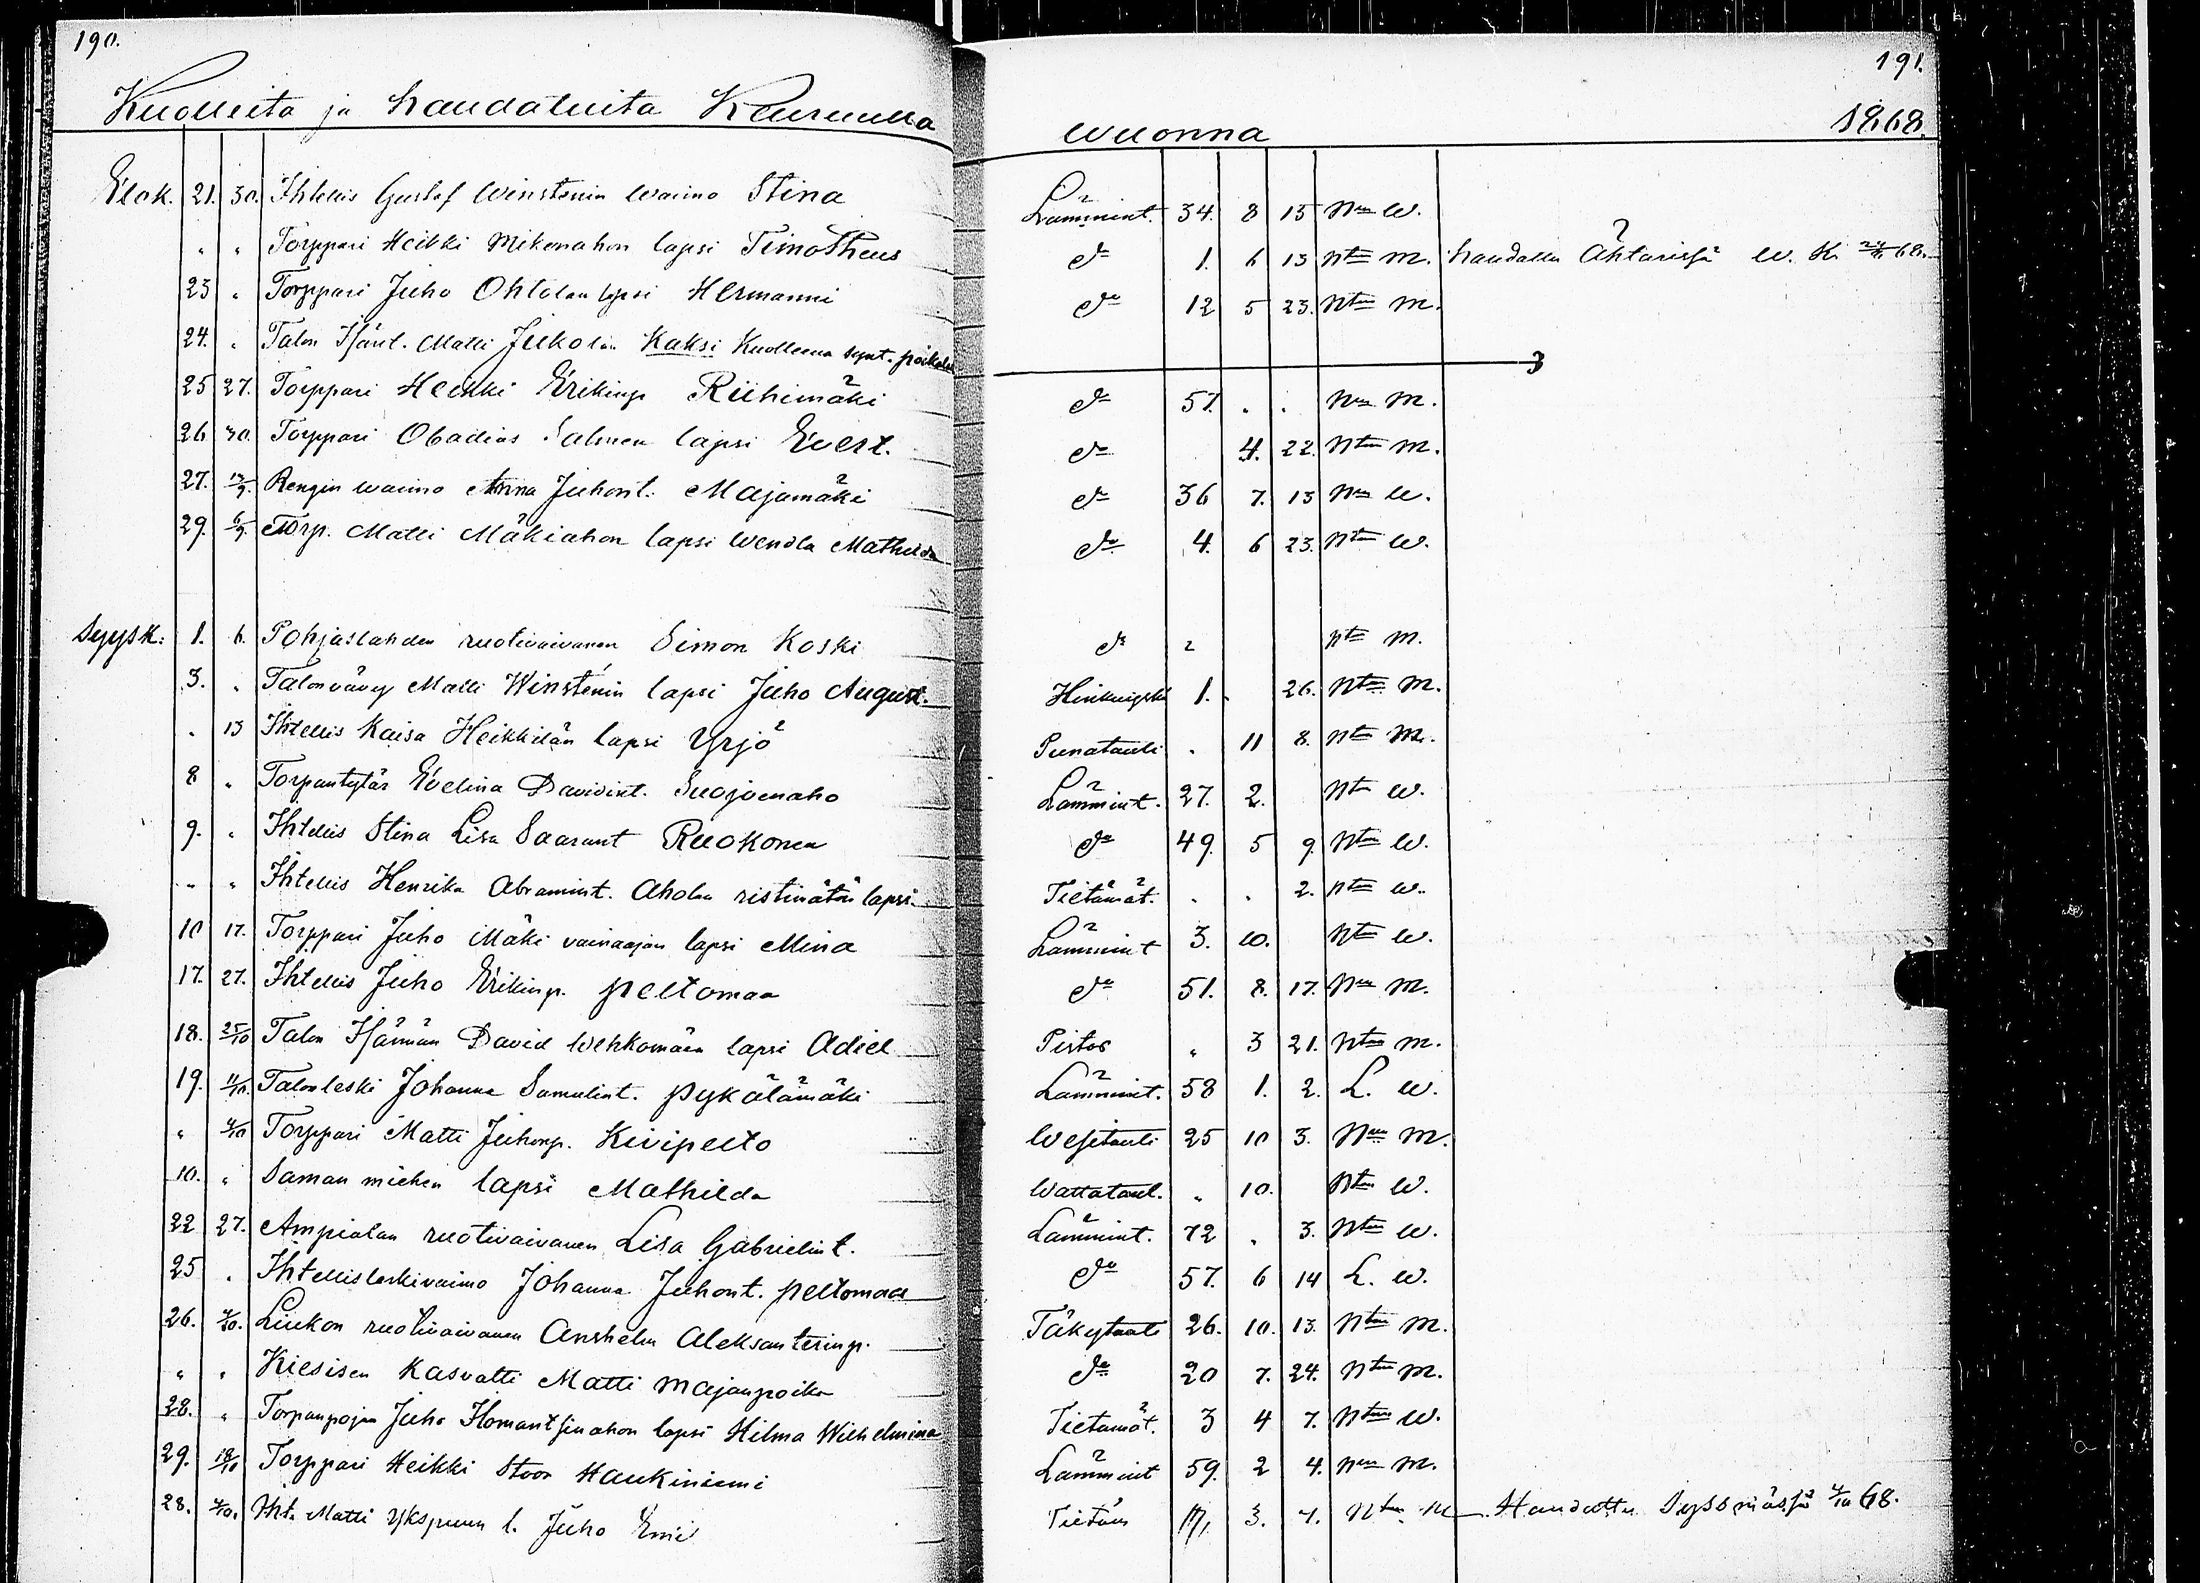 190. 191.
Kuolleita ja haudatuita Keuruulla wuonna 1868.
Elok. 21. 30. Ihtellis Gustaf Winstenin waimo Stina Lämmint. 34. 8 15 Nen W.
" " Torppari Heikki Mikonahon lapsi Timotheus do 1. 6 13 Ntön M. haudattu Ähtärissä W. K. 68.
23 " Torppari Juho Ohtolan lapsi Hermanni do 12 5 23. Ntön M.
24. " Talon Isänt. Matti Jukolan Kaksi Kuolleena synt. poikalasta
25 27. Torppari Heikki Erikinp. Riihimäki do 57. . . Nen M.
26 30. Torppari Obadias Salmen lapsi Evert. do 4. 22. Ntön M.
27. 13/9. Rengin waimo Anna Juhont. Majamäki do 36 7. 13 Nen W.
29. 6/9. Torp. Matti Mäkiahon lapsi Wendla Mathilda do 4. 6 23. Ntön W.
Syysk: 1. 6. Pohjaslahden ruotivaivanen Simon Koski do ntön M.
3. " Talonvävy Matti Winstenin lapsi Juho August. Hinkuyskä 1. . 26. Ntön M.
" 13 Ihtellis Kaisa Heikkilän lapsi Yrjö Punatauti . 11 8. Ntön M.
8 " Torpantytär Evelina Davidint. Suojoenaho Lämmint. 27. 2. Ntön W.
9. " Ihtellis Stina Lisa Saarant Ruokonen do 49. 5 9. Ntön W.
" " Ihtellis Henrika Abramint. Aholan ristimätön lapsi. Tietämät. . . 2. ntön W.
10 17. Torppari Juho Mäki vainaajan lapsi Mina Lämmint 3. 10. Ntön W.
17. 27. Ihtellis Juho Erikinp. Peltomaa do 51. 8. 17. Nen M.
18. 25/10 Talon Isännän David Wehkomäen lapsi Adiel Pistos " 3 21. Ntön M.
19. 11/10. Talonleski Johanna Samulint. Pykälämäki Lämmint. 58 1. 2. L. W.
" 4/10 Torppari Matti Juhonp. Kivipelto Wesitauti 25 10 3. Nen M.
10. " Saman miehen lapsi Mathilda Wattataut. " 10. Ntön W.
22 27. Ampialan ruotivaivanen Lisa Gabrielint. Lämmint. 72 . 3. Ntön W.
25 " Ihtellisleskivaimo Johanna Juhont. Peltomaa do 57. 6 14 L. W.
26. 4/10. Liukon ruotivaivanen Anshelm Aleksanterinp. Täkytauti 26. 10. 13. Ntön M.
" " Kiesisen Kasvatti Matti Majanpoika do 20 7. 24. Ntön M.
28. " Torpanpojan Juho Homantsinahon lapsi Hilma Wilhelmina Tietämät. 3 4 7. Ntön W.
29. 18/10 Torppari Heikki Stoor Haukiniemi Lämmint 59. 2 4. Nen M.
28. 4/10. Iht. Matti Ykspuun l. Juho Emil Tietäm 3. 7. Ntön M Haudattu Syssmässä 4/10 68.